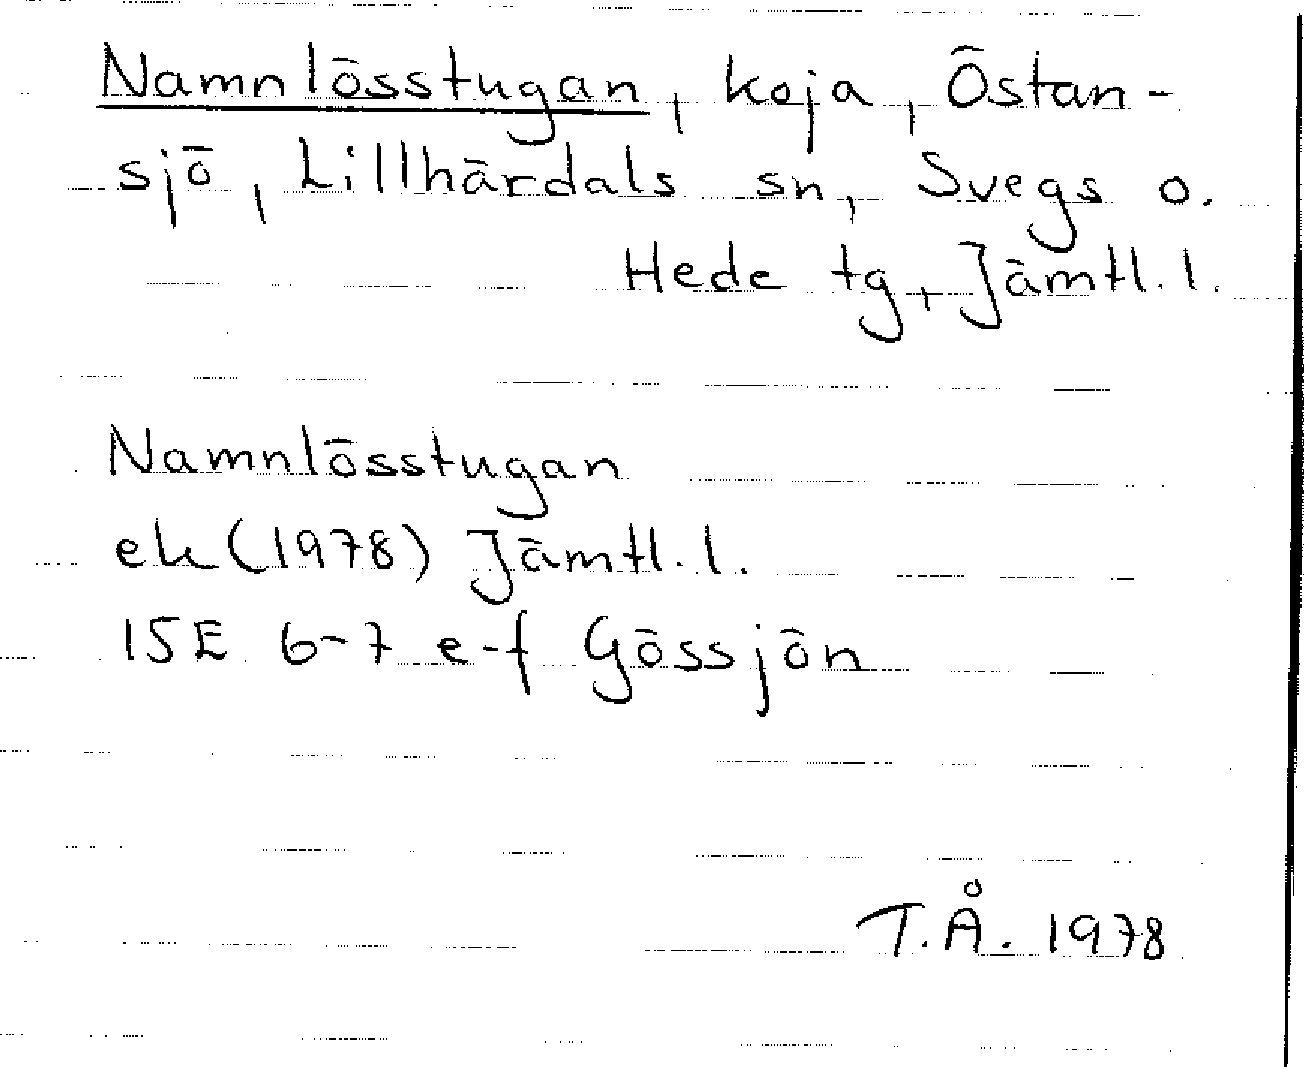 Namnlösstugan, koja, Östan-
sjö, Lillhärdals sn, Svegs o.
Hede tg, Jämtl. l.
Namnlösstugan
ek (1978) Jämtl. l.
15E 6-7 e-f Gössjön
T.Å. 1978